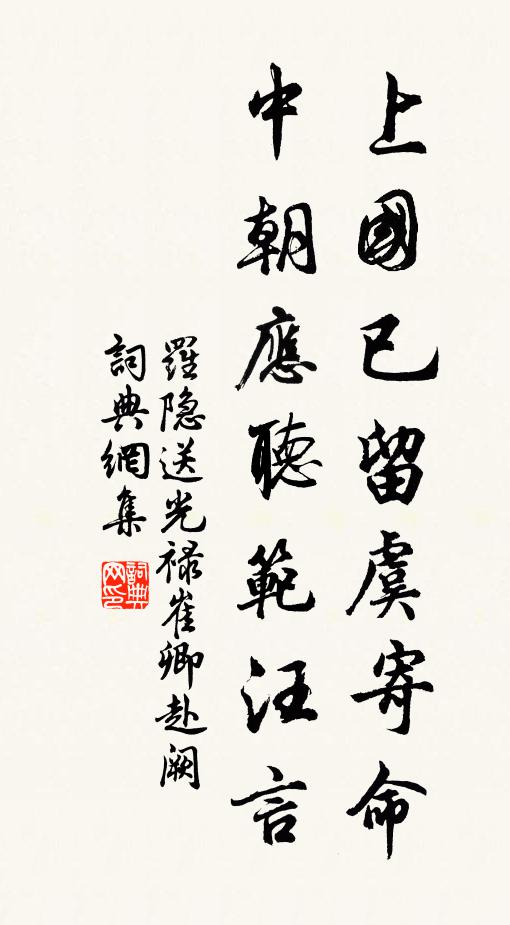 上國已留虞寄命
中朝應聽範汪言
羅隐送光祿崔卿赴阙
詞典網集
詞典網印